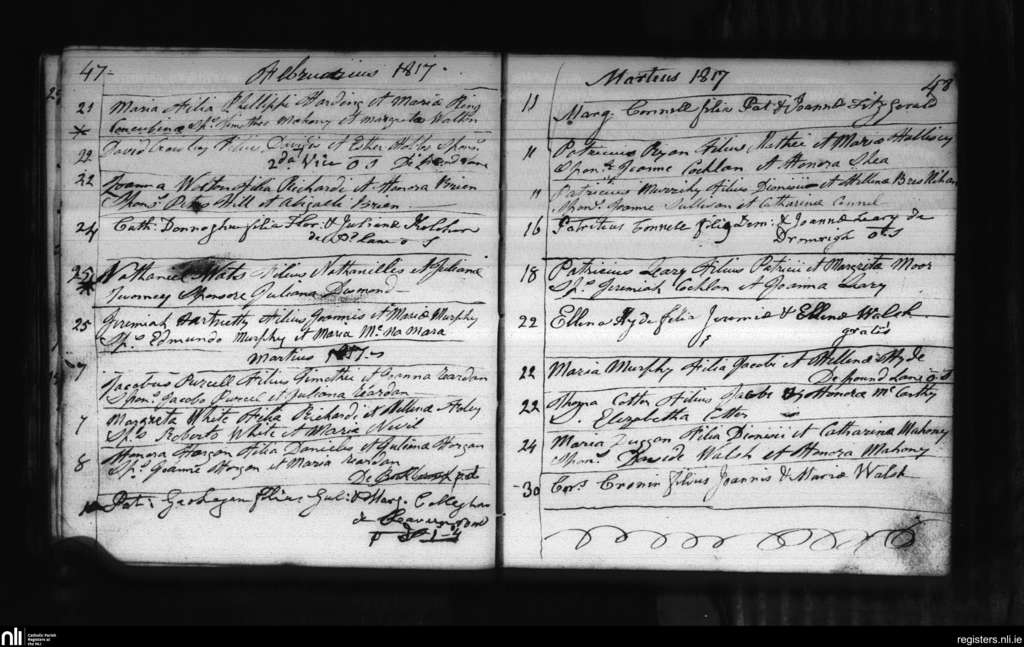 47- Februarius 1817.
21 Maria Filia Phillipi Harding et Maria Ring
* Concubina Sp.s Timotheo Mahony et Margreta Walton
22 David Crowley Filius Daniel et Esther Sponr
2da Vice o S
22 Joanna Filia Richardi et Honora Brien
Spons. Petro Hill et Abigalle Brien
24 Cath: Donnoghue filia Flor. & Juliana Keleher
de o S
25 Nathaniel Filius Nathanilles et Juliana
* Twomey Sponsore Juliana Desmond
25 Jeremiah Hartnetty Filius Joannis et Maria Murphy
Sp.s Edmundo Murphy et Maria Mc.Na mara
Martius 1817.
7 Jacobus Purcell Filius Timothei et Joanna Reardan
Spon.s Jacobo Purcel et Juliana Reardan
7 Margreta White Filia Richardi et Hellena
Sp.s Roberto White et Maria Nevil
8 Honora Horgan Filia Danielis et Julina Horgan
Sp.s Joanne Horgan et Maria Reardan
De
Pat: Geohegan filius Gul: & Marg: Calleghan
de
Martius 1817 48
11 Marg: Connell filia Pat & Joanna Fitzgerald
11 Patricius Ryan Filius Mathei et Maria Hallisey
Spon.s Joanne Cochlan et Honora Shea
11 Patritius Murrihy Filius Dionisii et Hellena Bresnihan
Spons. Joanne Sullivan et Catharina Connel
16 Patritius Connell filius Dem: & Joanna Leary de
Dromrigh o S
18 Patricius Leary Filius Patricii et Margrita Moor
Sp.s Jeremiah Cochlan et Joanna Leary
22 Ellena Hyde filia Jeremia & Ellena Walsh
gratis
22 Maria Murphy Filia Jacobi et Hellena Hyde
De pound Lane o S
22 Thoma Cotter Filius Jacobi & Honora Mc Carthy
S. Elizabetha Cotter
24 Maria Duggan Filia Dionisii et Catharina Mahony
Spon.s Davide Walsh et Honora Mahony
30 Cors Cronin filius Joannis & Maria Walsh
nli Catholic Parish
Registers at
the NLI
registers.nli.ie